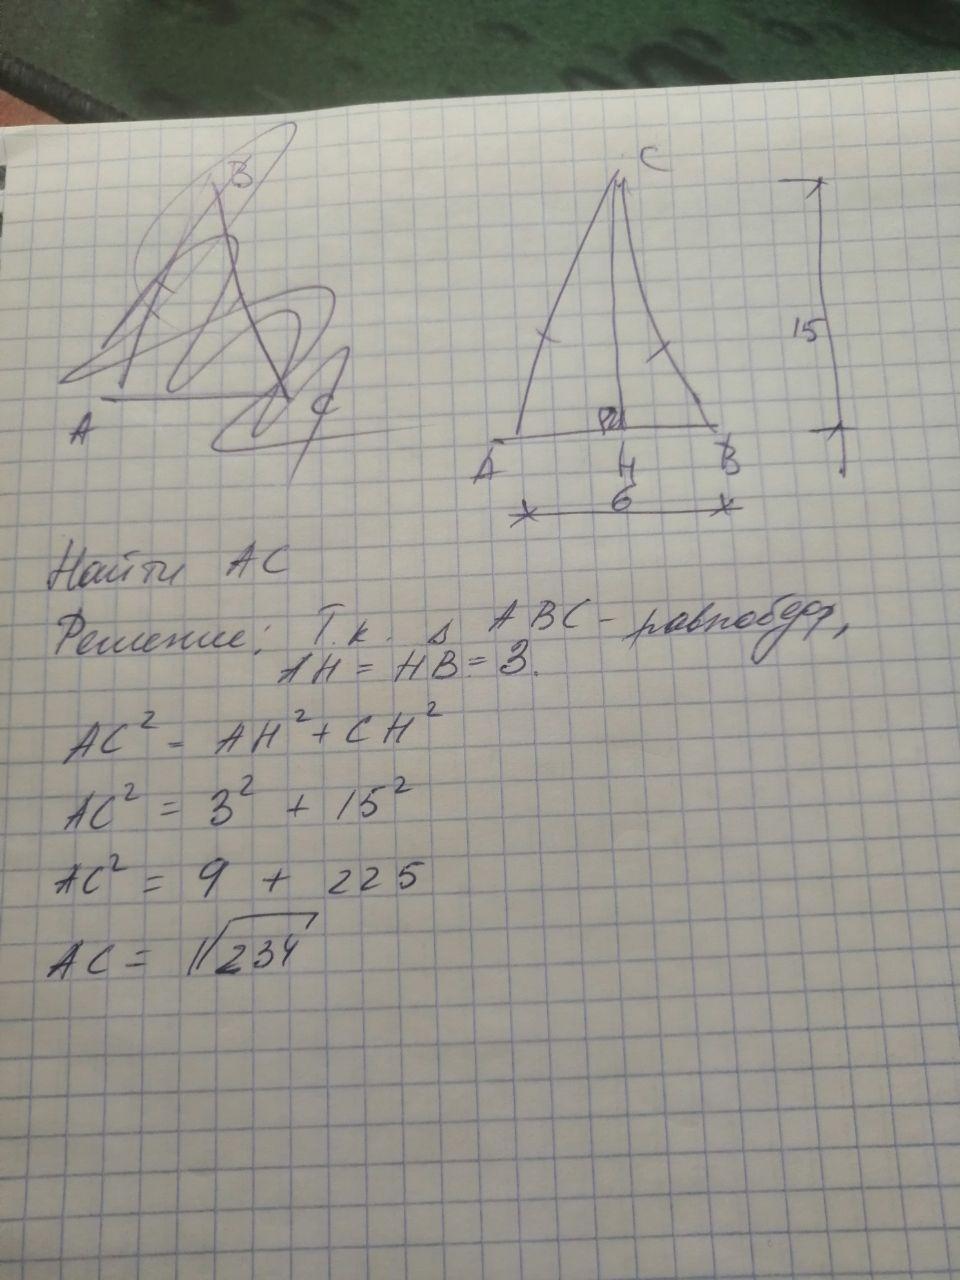 B
A
C
C
15
A
H
B
6
Найти AC
Решение: Т.к. Δ ABC - равнобедр,
AH = HB = 3.
AC² = AH² + CH²
AC² = 3² + 15²
AC² = 9 + 225
AC = √234